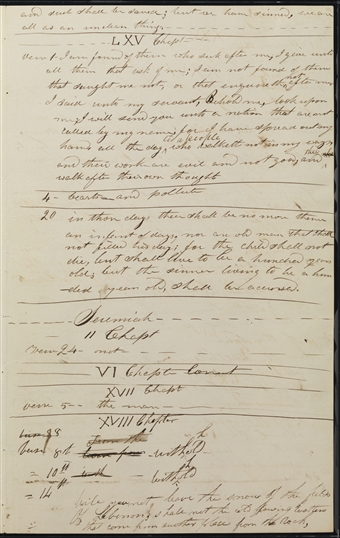 and such shall be saved; but we have sinned, we are
all as an unclean thing,
LXV Chapt
verse 1. I am found of them who seek after me, I give unto
all them that ask of me; I am not found of them
that sought me not, or that enquireth not after me
I said unto my servant, Behold me, look upon
me, I will send you unto a nation that are not
called by my name, for I have spread out my
hands all the day, to a people who walketh not in my ways
and their works are evil and not good, and
walk after their own thought
4 - beasts and pollute
20 in those days there shall be no more thence
an infant of days, nor an old man that hath
not filled his days; for the child shall not
die, but shall live to be a hundred years
old, but the sinner living to be a hun
dred years old, shall be accursed.
Jeremiah
II Chapt
verse 24 - not
VI Chapt Correct
XVII
Chapt
verse 5 - the man
XVIII Chapter
verse 8th withhold
= 10th withhold
= 14
will you not leave the snow of the fields
of Lebanon; shall not the cold flowing waters
that come from another place from the rock,